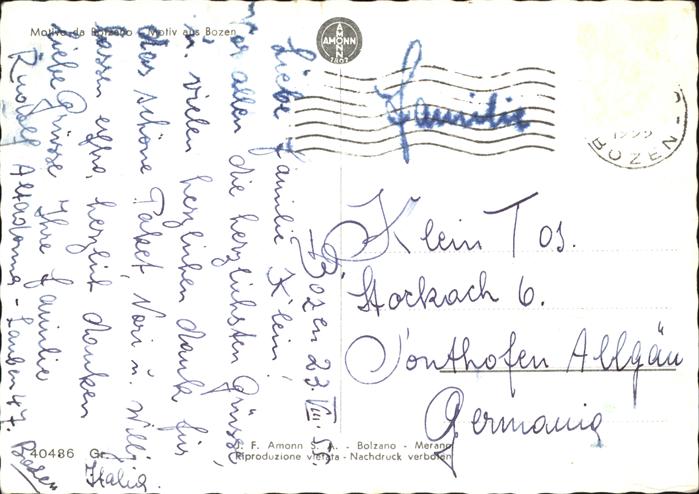 Motivo da Bolzano - Motiv aus Bozen
AMONN
AMONN
1802
BOZEN
Bozen 23. VIII. 55.
Liebe Familie Klein!
Vor allem die herzlichsten Grüsse
u. vielen herzlichen Dank für
das schöne Paket, Nori u. Willi
lassen extra herzlich danken
Liebe Grüsse Ihre Familie
Rudolf - Lauben 47 Bozen
Italia.
Familie
Klein Jos.
Stockach 6.
Sonthofen Allgäu
Germania
40486 Gr.
J. F. Amonn S. A. - Bolzano - Merano
Riproduzione vietata - Nachdruck verboten